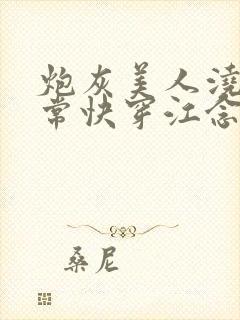 炮灰美人澆
常快穿江念
桑尼